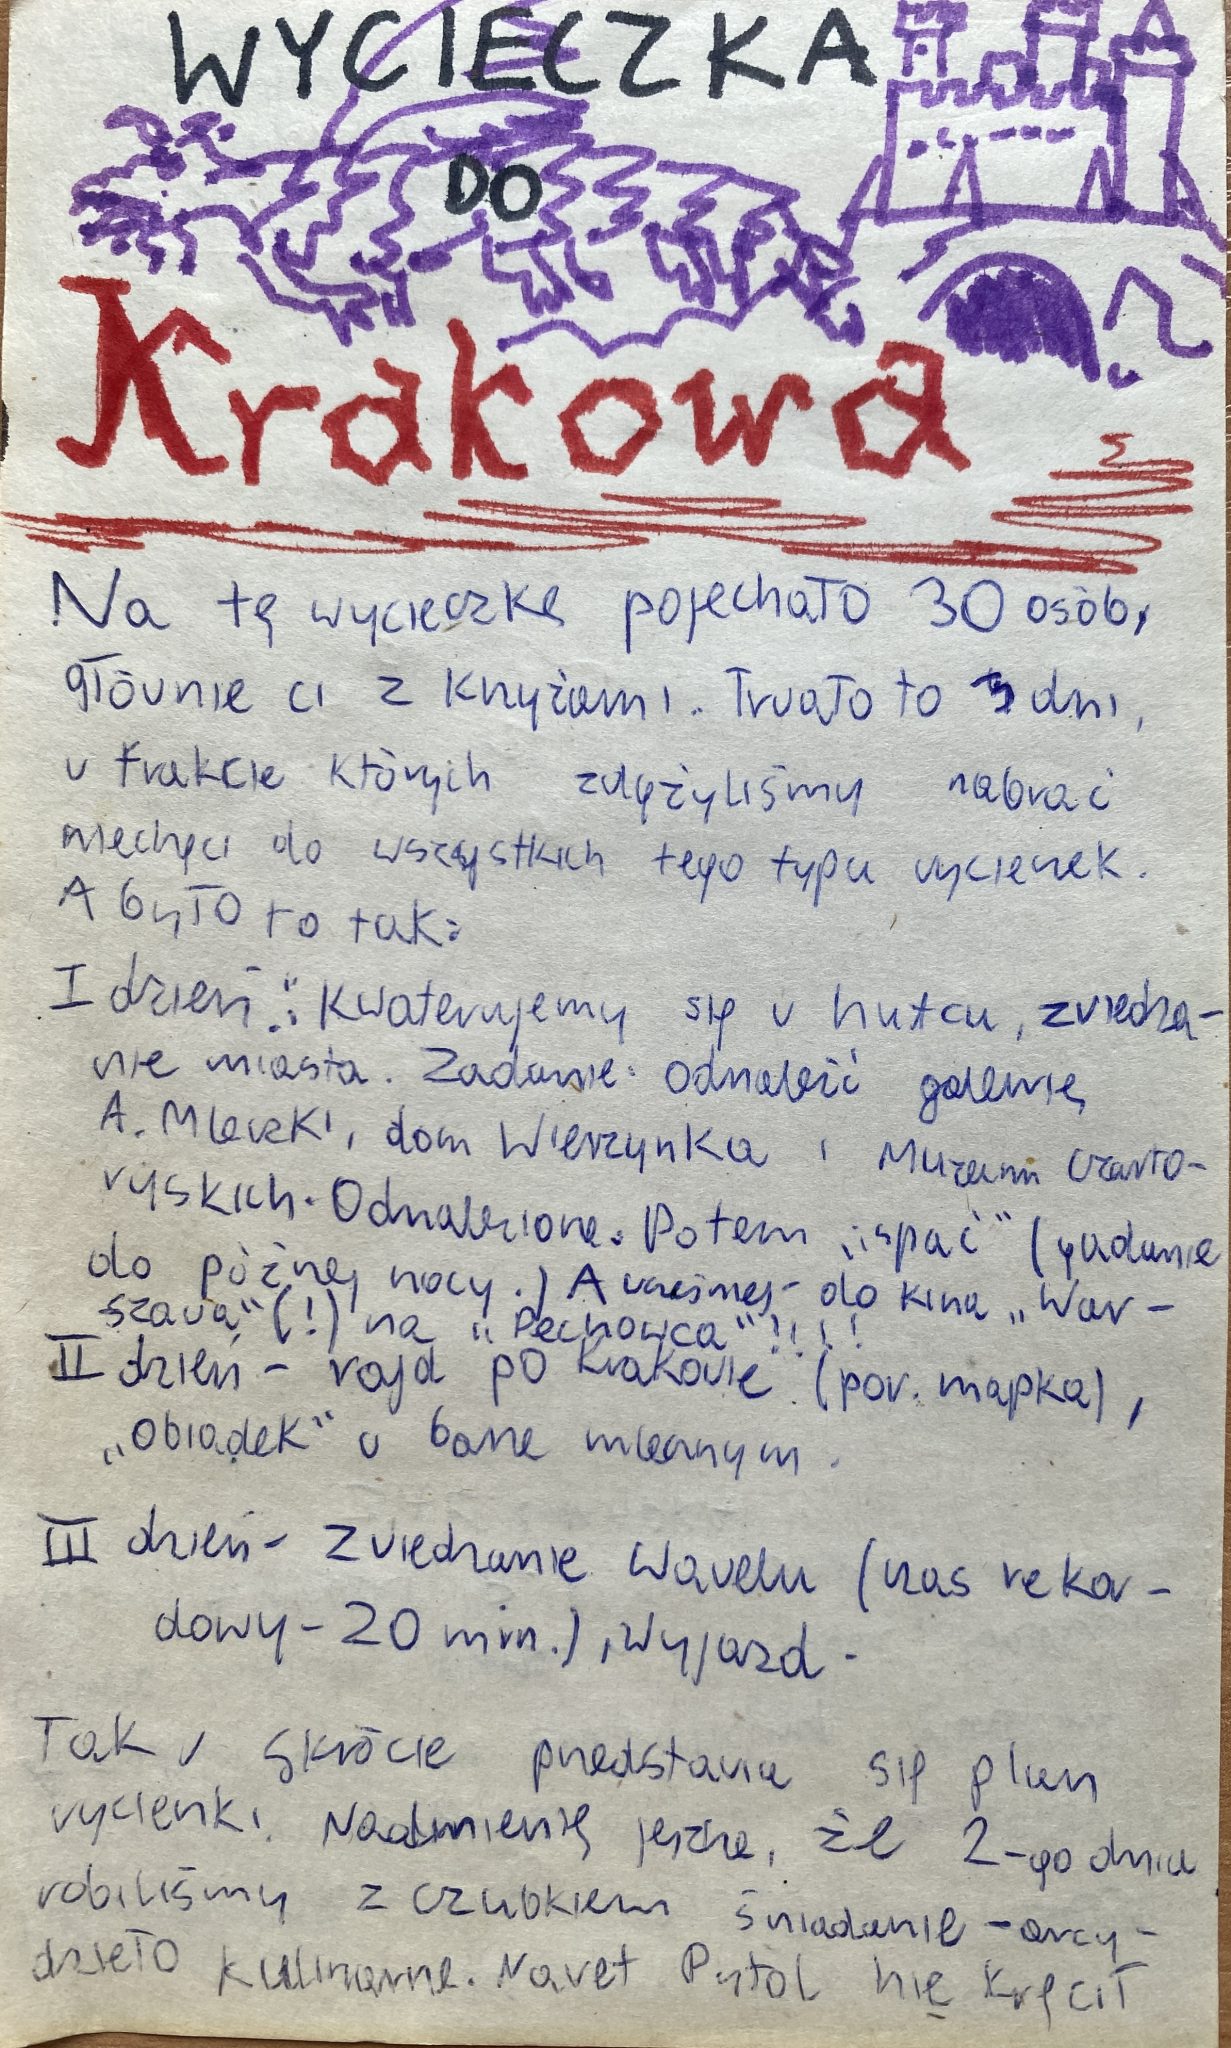 WYCIECZKA
DO
Krakowa
Na tę wycieczkę pojechało 30 osób,
głównie ci z Knyżami. Trwało to 3 dni,
w trakcie których zdążyliśmy nabrać
niechęci do wszystkich tego typu wycieczek.
A było to tak:
I dzień: Kwaterujemy się w hufcu, zwiedza-
nie miasta. Zadanie: odnaleźć galerię
A. Mleczki, dom Wierzynka i Muzeum Czarto-
ryskich. Odnalezione. Potem „spać” (gadanie
do późnej nocy.) A wcześniej - do kina „War-
szawa” (!) na „Pechowca”!!!!
II dzień - rajd po Krakowie (por. mapka),
„Obiadek” w barze mlecznym.
III dzień - Zwiedzanie Wawelu (czas rekor-
dowy - 20 min.), Wyjazd.
Tak w skrócie przedstawia się plan
wycieczki. Nadmienię jeszcze, że 2-go dnia
robiliśmy z Czubkiem śniadanie - arcy-
dzieło kulinarne. Nawet Pytol nie kręcił